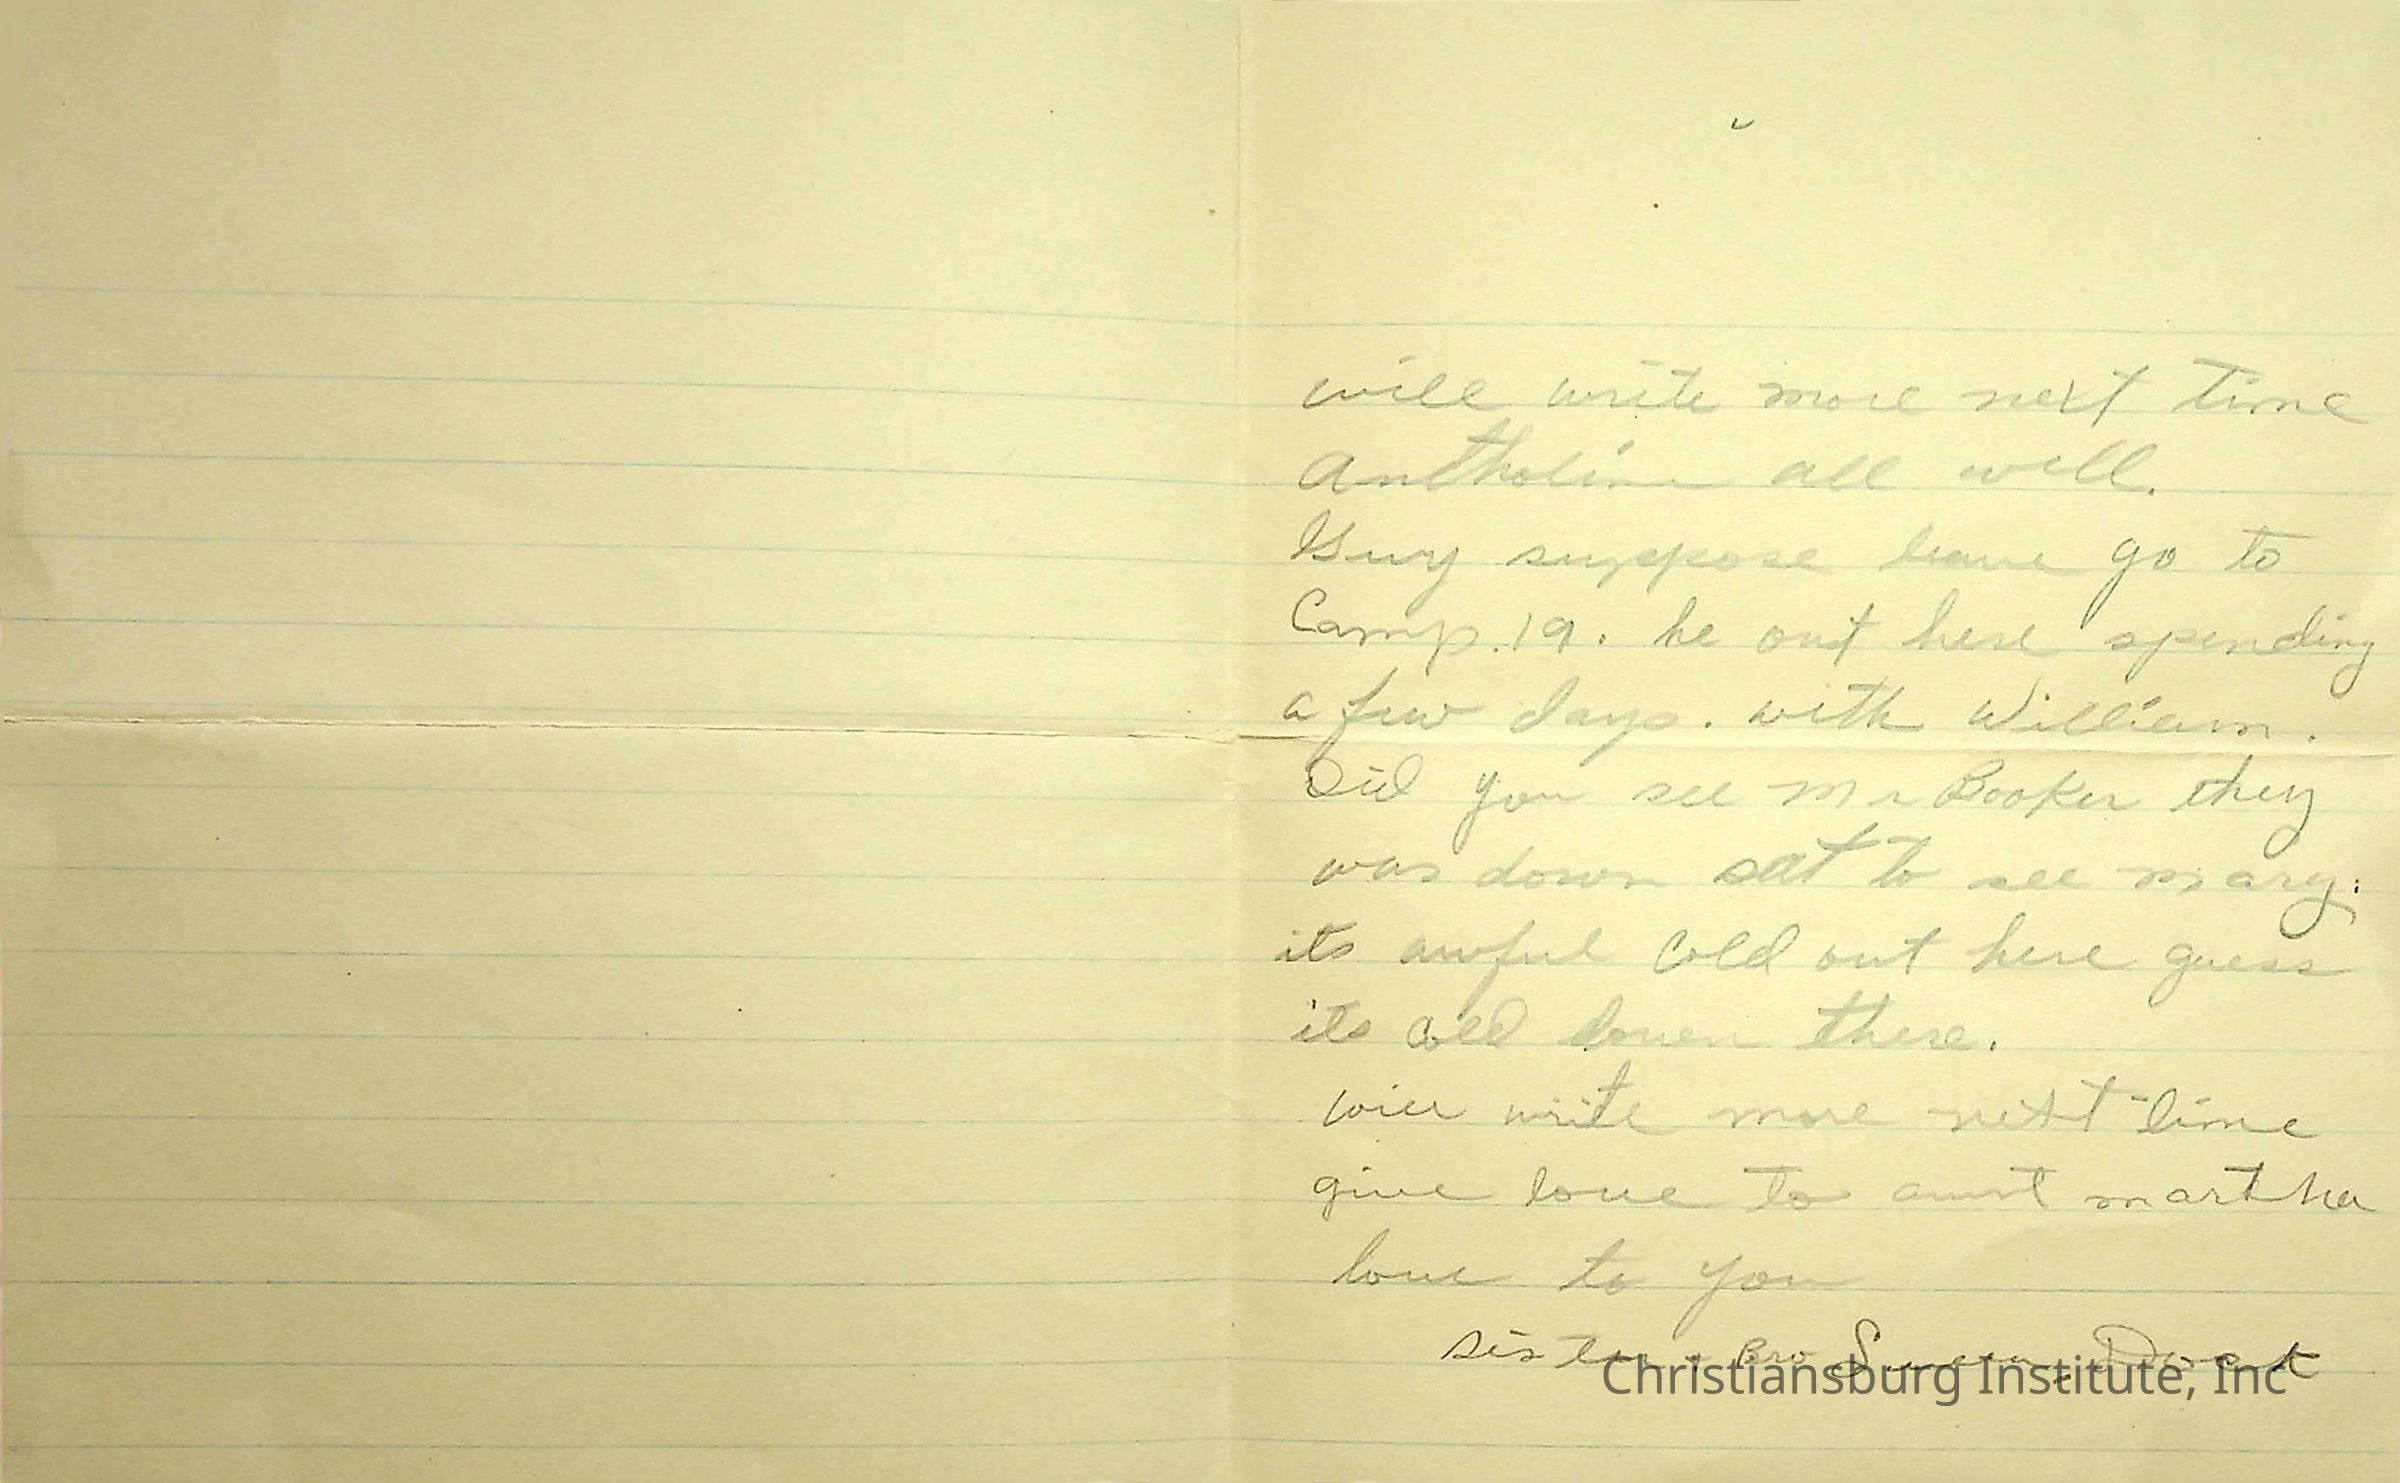 will write more next time
all well.
Guy suppose leave go to
Camp. 19. he out here spending
a few days. with William.
Did you see Mr Booker they
was down sat to see mary.
its awful Cold out here guess
its Cold down there.
will write more next time
give love to aunt martha
love to you
sister & Bro
Christiansburg Institute, Inc